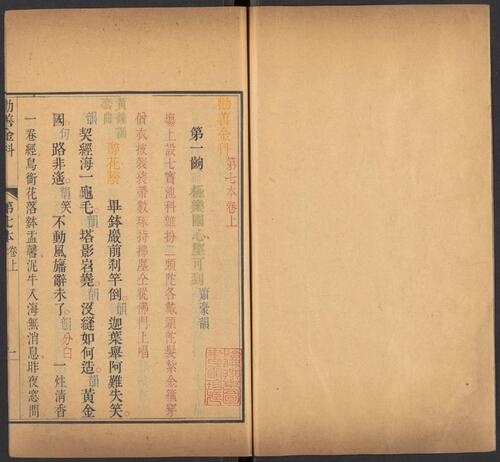 勸善金科 第七本卷上
第一齣 極樂國心堅可到 蕭豪韻
場上設七寶池科雜扮二頭陀各戴頭陀髮紫金箍穿
僧衣披袈裟帶數珠持拂塵全從佛門上唱
黃鍾調
套曲 醉花陰 畢鉢巖前刹竿倒韻迦葉舉阿難失笑
韻契經海一龜毛韻塔影岧嶤韻沒縫如何造韻黃金
國句路非遙韻笑不動風旛辭未了韻分白一炷清香
一卷經鳥銜花落鉢盂馨泥牛入海無消息昨夜窓間
勸善金科 第七本卷上 一